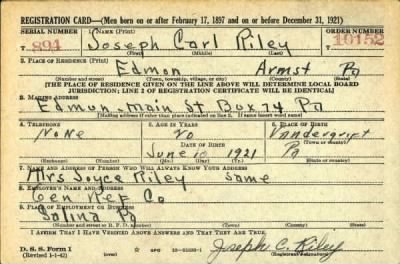 REGISTRATION CARD—(Men born on or after February 17, 1897 and on or before December 31, 1921)
SERIAL NUMBER 1. NAME (Print) ORDER NUMBER
T 894 Joseph Carl Riley 10152
(First) (Middle) (Last)
2. PLACE OF RESIDENCE (Print)
Edmon Armst Pa
(Number and street) (Town, township, village, or city) (County) (State)
[THE PLACE OF RESIDENCE GIVEN ON THE LINE ABOVE WILL DETERMINE LOCAL BOARD
JURISDICTION; LINE 2 OF REGISTRATION CERTIFICATE WILL BE IDENTICAL]
3. MAILING ADDRESS
Edmon Main St Box 74 Pa
[Mailing address if other than place indicated on line 2. If same insert word same]
4. TELEPHONE 5. AGE IN YEARS 6. PLACE OF BIRTH
None 20 Vandergrift
DATE OF BIRTH (Town or county)
June 10 1921 Pa
(Mo.) (Day) (Yr.) (State or country)
7. NAME AND ADDRESS OF PERSON WHO WILL ALWAYS KNOW YOUR ADDRESS
Mrs Joyce Riley Same
8. EMPLOYER'S NAME AND ADDRESS
Gen Ref Co
9. PLACE OF EMPLOYMENT OR BUSINESS
Salina Pa
(Number and street or R. F. D. number) (Town) (County) (State)
I AFFIRM THAT I HAVE VERIFIED ABOVE ANSWERS AND THAT THEY ARE TRUE.
D. S. S. Form 1
(Revised 1-1-42) GPO Joseph C. Riley
(Registrant's signature)